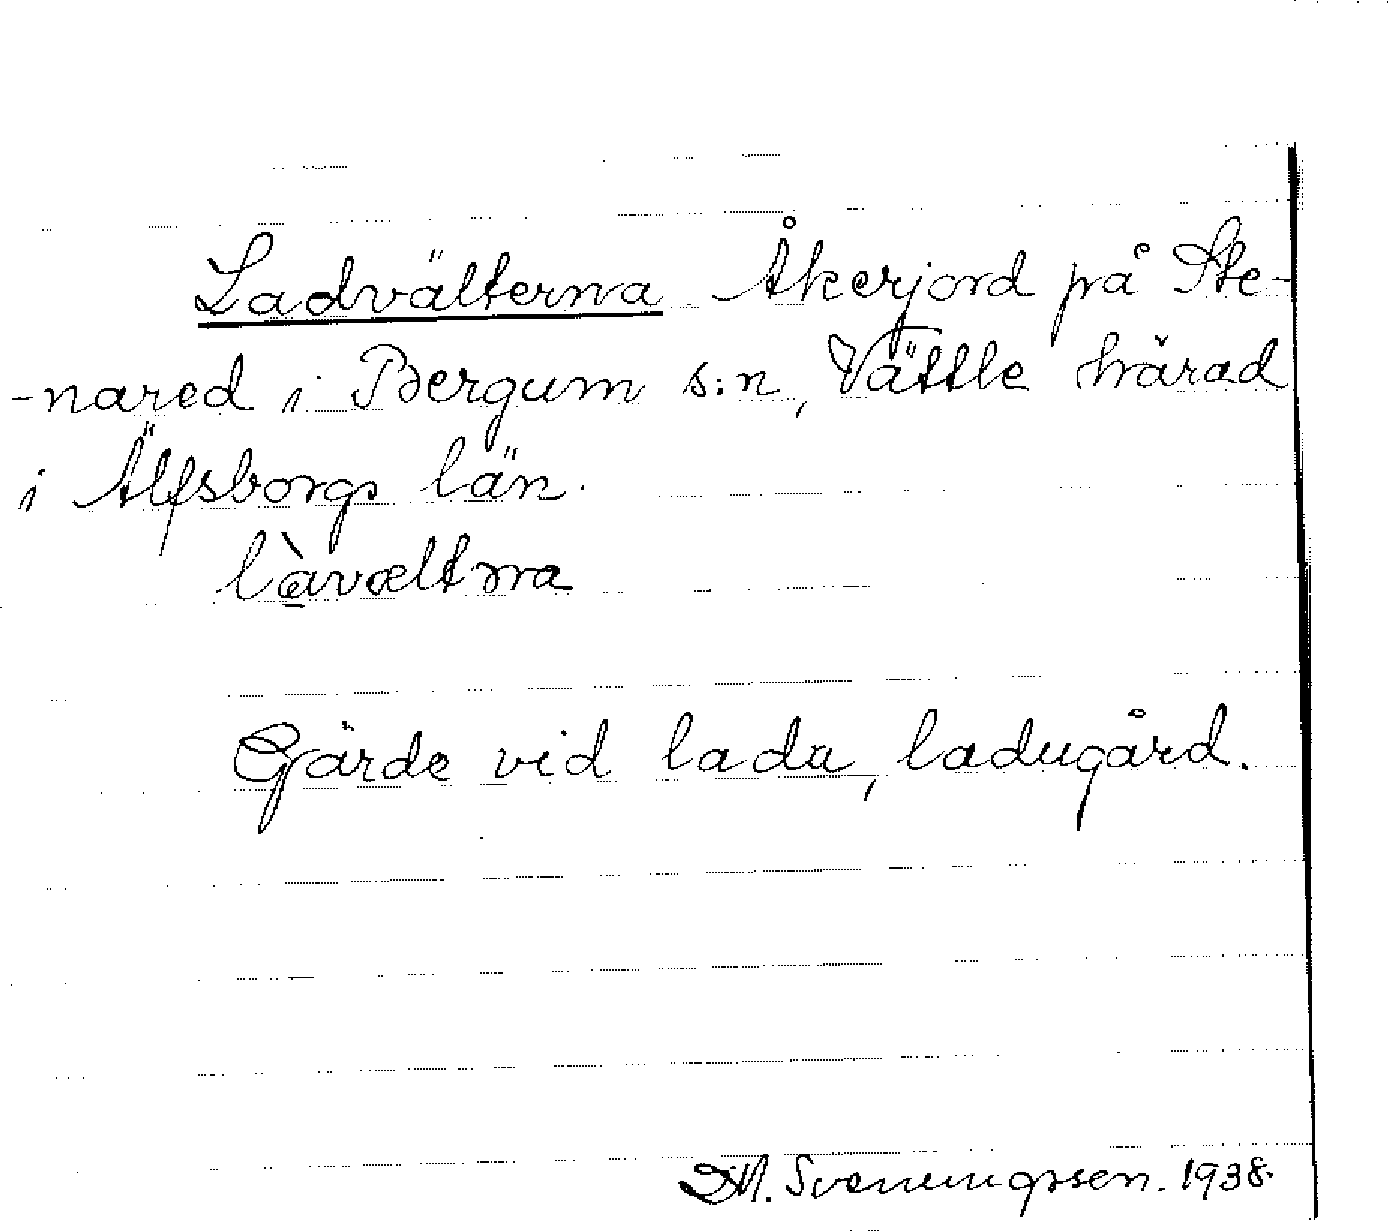 Ladvälterna Åkerjord på Ste-
-nared i Bergum s:n, Vättle härad
i Älfsborgs län.
làvæltṇa
Gärde vid lada, ladugård.
D.M. Svenningssen. 1938.